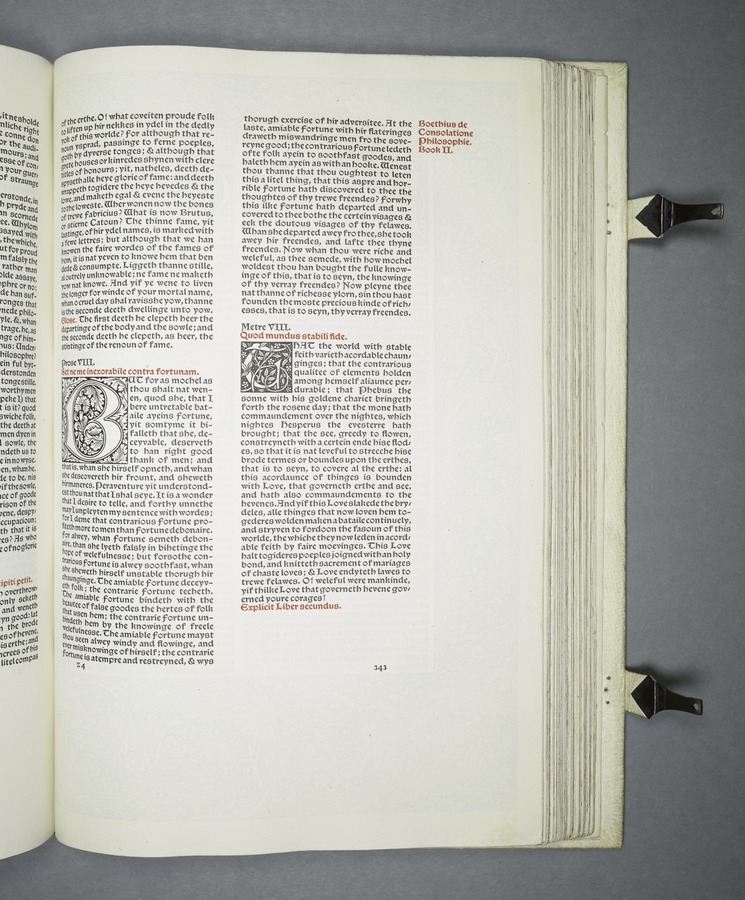 it nesholde
right
conne don
or the audi-
and
of straunge
pryde and
scorned
Whylom
the whiche,
for proud
falsly the
rather man
olde assaye,
or no:
he han suf-
& whan
as he
of him-
tonge stille.
worthy men
is it? quod
the deeth at
men dyen in
sowle, the
whan he,
if the sowle,
of goode
of the
despy-
that it is
As who
of no glorie
overthrow-
only seketh
and weneth
good: lat
the brode
of hevene,
erthe: and
of his
litel compas
of the erthe. O! what coveiten proude folk
to liften up hir nekkes in ydel in the dedly
yok of this worlde? For although that re-
noun ysprad, passinge to ferne poeples,
goth by dyverse tonges; & although that
grete houses or kinredes shynen with clere
titles of honours; yit, natheles, deeth de-
spyseth alle heye glorie of fame: and deeth
wrappeth togidere the heye hevedes & the
lowe, and maketh egal & evene the heyeste
to the loweste. Wher wonen now the bones
of trewe Fabricius? What is now Brutus,
or stierne Catoun? The thinne fame, yit
lastinge, of hir ydel names, is marked with
a fewe lettres; but although that we han
knowen the faire wordes of the fames of
hem, it is nat yeven to knowe hem that ben
dede & consumpte. Liggeth thanne stille,
al outrely unknowable; ne fame ne maketh
yow nat knowe. And yif ye wene to liven
the longer for winde of your mortal name,
whan o cruel day shal ravisshe yow, thanne
is the seconde deeth dwellinge unto yow.
Glose. The first deeth he clepeth heer the
departinge of the body and the sowle; and
the seconde deeth he clepeth, as heer, the
stintinge of the renoun of fame.
Prose VIII.
Set ne me inexorabile contra fortunam.
BUT for as mochel as
thou shalt nat wen-
en, quod she, that I
bere untretable bat-
aile ayeins fortune,
yit somtyme it bi-
falleth that she, de-
ceyvable, deserveth
to han right good
thank of men; and
that is, whan she hirself opneth, and whan
she descovereth hir frount, and sheweth
hir maneres. Peraventure yit understond-
est thou nat that I shal seye. It is a wonder
that I desire to telle, and forthy unnethe
may I unpleyten my sentence with wordes;
for I deme that contrarious Fortune pro-
fiteth more to men than Fortune debonaire.
For alwey, whan Fortune semeth debon-
aire, than she lyeth falsly in bihetinge the
hope of welefulnesse; but forsothe con-
trarious Fortune is alwey soothfast, whan
she sheweth hirself unstable thorugh hir
chaunginge. The amiable Fortune deceyv-
eth folk; the contrarie Fortune techeth.
The amiable Fortune bindeth with the
beautee of false goodes the hertes of folk
that usen hem; the contrarie Fortune un-
bindeth hem by the knowinge of freele
welefulnesse. The amiable Fortune mayst
thou seen alwey windy and flowinge, and
ever misknowinge of hirself; the contrarie
Fortune is atempre and restreyned, & wys
24
thorugh exercise of hir adversitee. At the
laste, amiable Fortune with hir flateringes
draweth miswandringe men fro the sove-
reyne good; the contrarious Fortune ledeth
ofte folk ayein to soothfast goodes, and
haleth hem ayein as with an hooke. Wenest
thou thanne that thou oughtest to leten
this a litel thing, that this aspre and hor-
rible Fortune hath discovered to thee the
thoughtes of thy trewe freendes? Forwhy
this ilke Fortune hath departed and un-
covered to thee bothe the certein visages &
eek the doutous visages of thy felawes.
Whan she departed awey fro thee, she took
awey hir freendes, and lafte thee thyne
freendes. Now whan thou were riche and
weleful, as thee semede, with how mochel
woldest thou han bought the fulle know-
inge of this, that is to seyn, the knowinge
of thy verray freendes? Now pleyne thee
nat thanne of richesse ylorn, sin thou hast
founden the moste precious kinde of rich-
esses, that is to seyn, thy verray freendes.
Metre VIII.
Quod mundus stabili fide.
THAT the world with stable
feith varieth acordable chaun-
ginges; that the contrarious
qualitee of elements holden
among hemself aliaunce per-
durable; that Phebus the
sonne with his goldene chariet bringeth
forth the rosene day; that the mone hath
commaundement over the nightes, which
nightes Hesperus the evesterre hath
brought; that the see, greedy to flowen,
constreyneth with a certein ende hise flod-
es, so that it is nat leveful to strecche hise
brode termes or boundes upon the erthes,
that is to seyn, to covere al the erthe: al
this acordaunce of thinges is bounden
with Love, that governeth erthe and see,
and hath also commaundements to the
hevenes. And yif this Love slakede the bry-
deles, alle thinges that now loven hem to-
gederes wolden maken a bataile continuely,
and stryven to fordoon the fasoun of this
worlde, the whiche they now leden in acord-
able feith by faire moevinges. This Love
halt togideres poeples joigned with an holy
bond, and knitteth sacrement of mariages
of chaste loves; & Love endyteth lawes to
trewe felawes. O! weleful were mankinde,
yif thilke Love that governeth hevene gov-
erned youre corages!
Explicit Liber secundus.
243
Boethius de
Consolatione
Philosophie.
Book II.